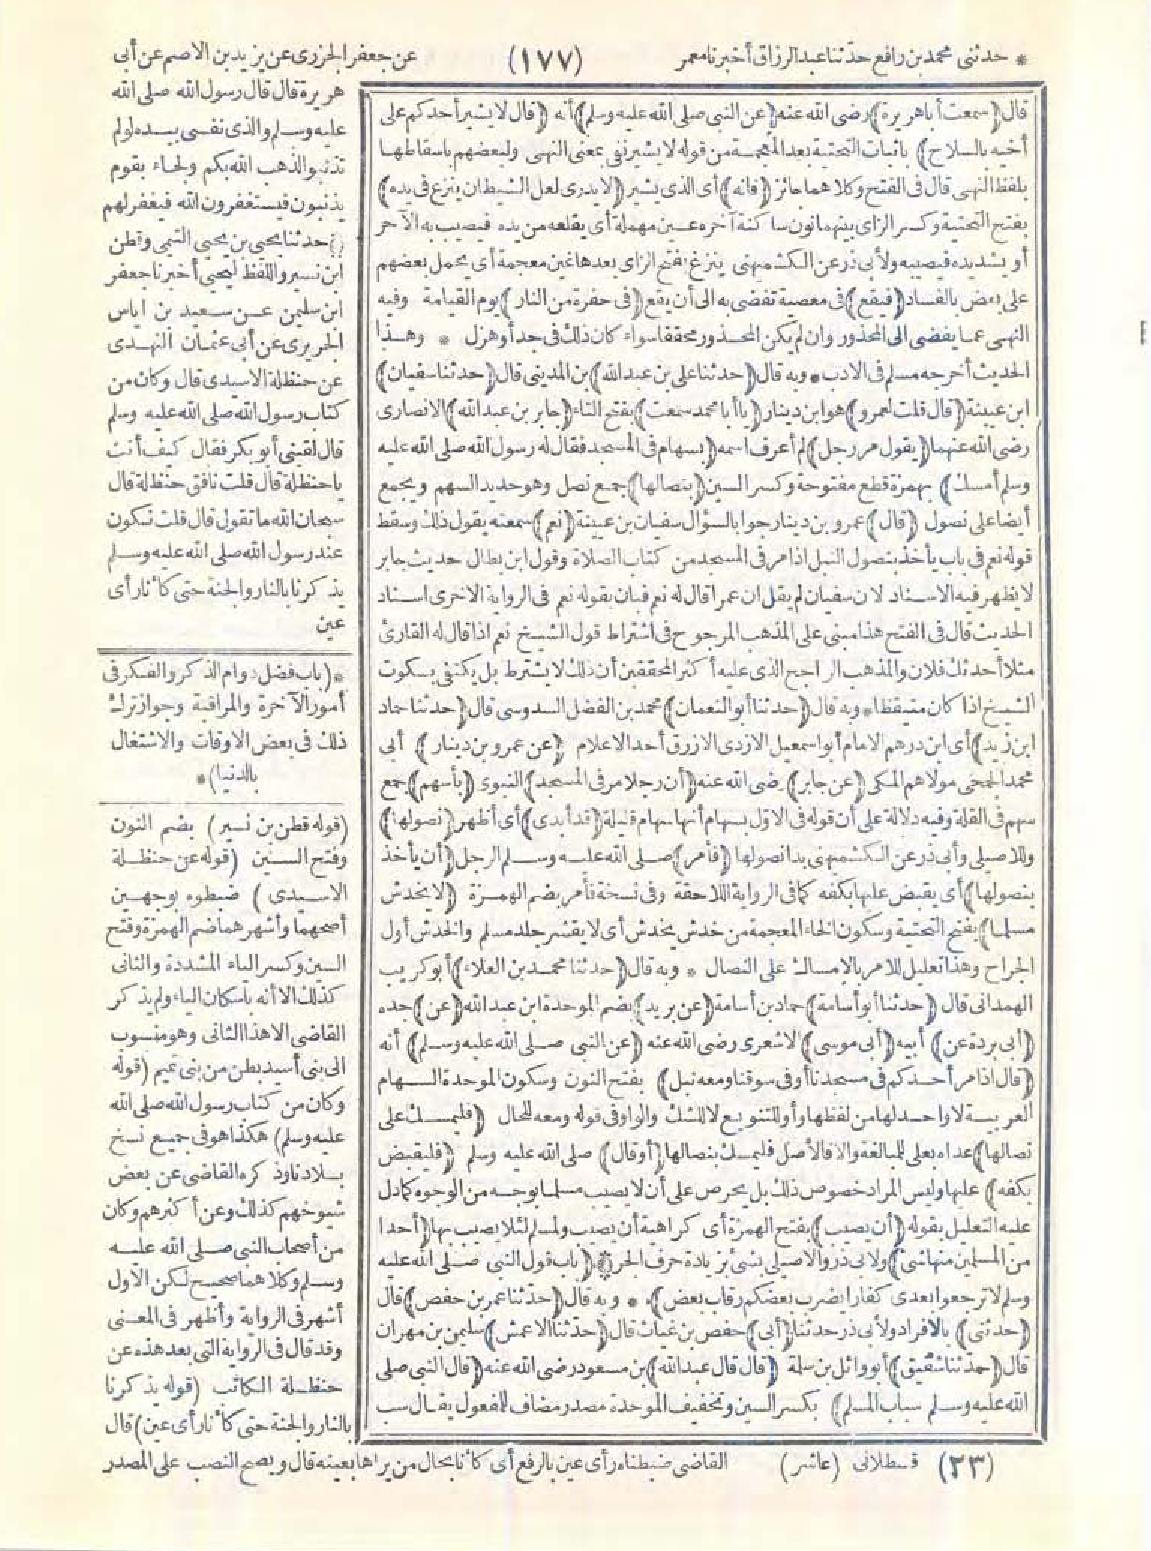 * حدثنى محمد بن رافع حدثنا عبد الرزاق أخبرنا معمر
(١٧٧)
عن جعفر الجزرى عن يزيد بن الاصم عن أبى
هريرة قال قال رسول الله صلى الله
عليه وسلم والذى نفسى بيده لولم
تذنبوا لذهب الله بكم ولجاء بقوم
يذنبون فيستغفرون الله فيغفر لهم
حدثنا يحيى بن يحيى التيمى وقطن
ابن نسير واللفظ ليحيى أخبرنا جعفر
ابن سليمن عن سعيد بن اياس
الجريرى عن أبى عثمان النهدى
عن حنظلة الاسيدى قال وكان من
كتاب رسول الله صلى الله عليه وسلم
قال لقينى أبو بكر فقال كيف أنت
يا حنظلة قال قلت نافق حنظلة قال
سبحان الله ما تقول قال قلت نكون
عند رسول الله صلى الله عليه وسلم
يذكرنا بالنار والجنة حتى كأنا رأى
عين
*(باب فضل دوام الذكر والفكر فى
أمور الآخرة والمراقبة وجواز ترك
ذلك فى بعض الاوقات والاشتغال
بالدنيا)*
(قوله قطن بن نسير) بضم النون
وفتح السين (قوله عن حنظلة
الاسيدى) ضبطوه بوجهين
أصحهما وأشهرهما ضم الهمزة وفتح
السين وكسر الياء المشددة والثانى
كذلك الا أنه باسكان الياء ولم يذكر
القاضى الا هذا الثانى وهو منسوب
الى بنى أسيد بطن من بنى تميم (قوله
وكان من كتاب رسول الله صلى الله
عليه وسلم) هكذا هو فى جميع نسخ
بلادنا وذكره القاضى عن بعض
شيوخهم كذلك وعن أكثرهم وكان
من أصحاب النبى صلى الله عليه
وسلم وكلاهما صحيح لكن الاول
أشهر فى الرواية وأظهر فى المعنى
وقد قال فى الرواية التى بعد هذه عن
حنظلة الكاتب (قوله يذكرنا
بالنار والجنة حتى كأنا رأى عين) قال
القاضى ضبطناه رأى عين بالرفع أى كأنا بحال من يراها بعينه قال ويصح النصب على المصدر
قال (سمعت أبا هريرة) رضى الله عنه (عن النبى صلى الله عليه وسلم) أنه (قال لا يشير أحدكم على
أخيه بالسلاح) باثبات التحتية بعد المعجمة من قوله لا يشير نفى بمعنى النهى ولبعضهم باسقاطها
بلفظ النهى قال فى الفتح وكلاهما جائز (فانه) أى الذى يشير (لا يدرى لعل الشيطان ينزع فى يده)
بفتح التحتية وكسر الزاى بينهما نون ساكنة آخره عين مهملة أى يقلعه من يده فيصيب به الآخر
أو يشد يده فيصيبه ولأبى ذر عن الكشميهنى ينزغ بفتح الزاى بعدها غين معجمة أى يحمل بعضهم
على بعض بالفساد (فيقع) فى معصية تفضى به الى أن يقع (فى حفرة من النار) يوم القيامة وفيه
النهى عما يفضى الى المحذور وان لم يكن المحذور محققا سواء كان ذلك فى جد أو هزل * وهذا
الحديث أخرجه مسلم فى الادب * وبه قال (حدثنا على بن عبد الله) بن المدينى قال (حدثنا سفيان)
ابن عيينة (قال قلت لعمرو) هو ابن دينار (يا أبا محمد سمعت) بفتح التاء (جابر بن عبد الله) الانصارى
رضى الله عنهما (يقول مر رجل) لم أعرف اسمه (بسهام فى المسجد فقال له رسول الله صلى الله عليه
وسلم أمسك) بهمزة قطع مفتوحة وكسر السين (بنصالها) جمع نصل وهو حديد السهم ويجمع
أيضا على نصول (قال) عمرو بن دينار جوابا لسؤال سفيان بن عيينة (نعم) سمعته يقول ذلك وسقط
قوله نعم فى باب يأخذ بنصول النبل اذا مر فى المسجد من كتاب الصلاة وقول ابن بطال حديث جابر
لا يظهر فيه الاسناد لان سفيان لم يقل ان عمرا قال له نعم فبان بقوله نعم فى الرواية الاخرى اسناد
الحديث قال فى الفتح هذا مبنى على المذهب المرجوح فى اشتراط قول الشيخ نعم اذا قال له القارئ
مثلا أحدثك فلان والمذهب الراجح الذى عليه أكثر المحققين أن ذلك لا يشترط بل يكتفى بسكوت
الشيخ اذا كان متيقظا * وبه قال (حدثنا أبو النعمان) محمد بن الفضل السدوسى قال (حدثنا حماد
ابن زيد) أى ابن درهم الامام أبو اسمعيل الازدى الازرق أحد الاعلام (عن عمرو بن دينار) أبى
محمد الجمحى مولاهم المكى (عن جابر) رضى الله عنه (أن رجلا مر فى المسجد) النبوى (بأسهم) جمع
سهم فى القلة وفيه دلالة على أن قوله فى الاول بسهام أنها سهام قليلة (قد أبدى) أى أظهر (نصولها)
وللاصيلى وأبى ذر عن الكشميهنى بدا نصولها (فأمر) صلى الله عليه وسلم الرجل (أن يأخذ
بنصولها) أى يقبض عليها بكفه كما فى الرواية اللاحقة وفى نسخة فأمر بضم الهمزة (لا يخدش
مسلما) بفتح التحتية وسكون الخاء المعجمة من خدش يخدش أى لا يقشر جلد مسلم والخدش أول
الجراح وهذا تعليل للامر بالامساك على النصال * وبه قال (حدثنا محمد بن العلاء) أبو كريب
الهمدانى قال (حدثنا أبو أسامة) حماد بن أسامة (عن بريد) بضم الموحدة ابن عبد الله (عن) جده
(أبى بردة عن) أبيه (أبى موسى) الاشعرى رضى الله عنه (عن النبى صلى الله عليه وسلم) أنه
(قال اذا مر أحدكم فى مسجدنا أو فى سوقنا ومعه نبل) بفتح النون وسكون الموحدة السهام
العربية لا واحد لها من لفظها وأو للتنويع لا للشك والواو فى قوله ومعه للحال (فليمسك على
نصالها) عداه بعلى للمبالغة والا فالأصل فليمسك بنصالها (أو قال) صلى الله عليه وسلم (فليقبض
بكفه) عليها وليس المراد خصوص ذلك بل يحرص على أن لا يصيب مسلما بوجه من الوجوه كما دل
عليه التعليل بقوله (أن يصيب) بفتح الهمزة أى كراهية أن يصيب ولمسلم لئلا يصيب بها (أحدا
من المسلمين منها شئ) ولأبى ذر والاصيلى بشئ بزيادة حرف الجر (باب قول النبى صلى الله عليه
وسلم لا ترجعوا بعدى كفارا يضرب بعضكم رقاب بعض) * وبه قال (حدثنا عمر بن حفص) قال
(حدثنى) بالافراد ولأبى ذر حدثنا (أبى) حفص بن غياث قال (حدثنا الاعمش) سليمن بن مهران
قال (حدثنا شقيق) أبو وائل بن سلمة (قال قال عبد الله) بن مسعود رضى الله عنه (قال النبى صلى
الله عليه وسلم سباب المسلم) بكسر السين وتخفيف الموحدة مصدر مضاف للمفعول يقال سب
(٢٣) قسطلانى (عاشر)